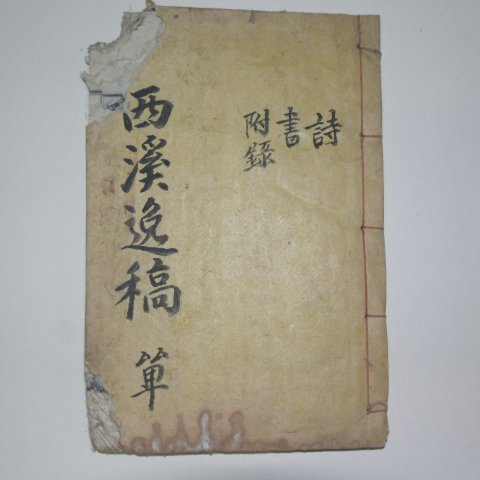 詩
書
附錄
西溪逸稿 單